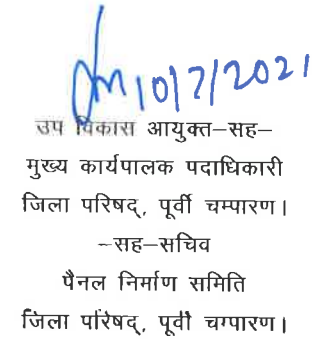 10/7/2021
उप विकास आयुक्त–सह–
मुख्य कार्यपालक पदाधिकारी
जिला परिषद्, पूर्वी चम्पारण।
–सह–सचिव
पैनल निर्माण समिति
जिला परिषद्, पूर्वी चम्पारण।